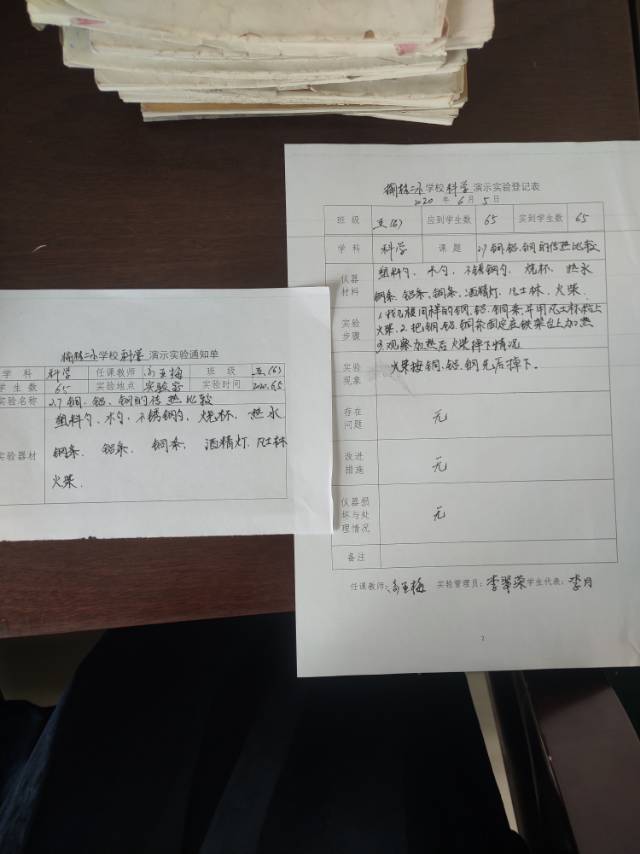 二小学校科学演示实验通知单
学科 科学 任课教师 玉梅 班级 五(6)
学生数 65 实验地点 实验室 实验时间 2020.6.5
实验名称 2.7 铜、铝、钢的传热比较
实验器材 塑料勺、木勺、不锈钢勺、烧杯、热水
钢条、铝条、铜条、酒精灯、凡士林
火柴.
二小学校科学演示实验登记表
2020年6月5日
班级 五(6) 应到学生数 65 实到学生数 65
学科 科学 课题 2.7 铜、铝、钢的传热比较
仪器材料 塑料勺、木勺、不锈钢勺、烧杯、热水
钢条、铝条、铜条、酒精灯、凡士林、火柴.
实验步骤 1.找三根同样的钢、铝、铜条并用凡士林粘上
火柴.2.把铜、铝、钢条固定在铁架台上加热
3.观察加热后火柴掉下情况
实验现象 火柴按铜、铝、钢先后掉下.
存在问题 无
改进措施 无
仪器损坏与处理情况 无
备注
任课教师: 玉梅 实验管理员: 李翠荣 学生代表: 李月